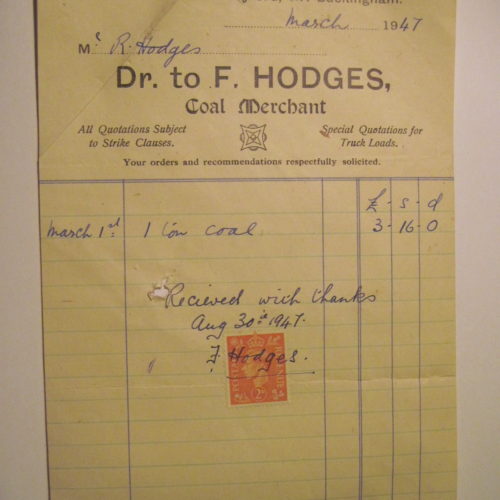 Nr. Buckingham.
March 1947
Mr R. Hodges
Dr. to F. HODGES,
Coal Merchant
All Quotations Subject to Strike Clauses.
Special Quotations for Truck Loads.
Your orders and recommendations respectfully solicited.
£ - s - d
March 1st 1 Ton coal 3 - 16 - 0
Recieved with thanks
Aug 30th 1947.
F Hodges.
POSTAGE REVENUE
2D